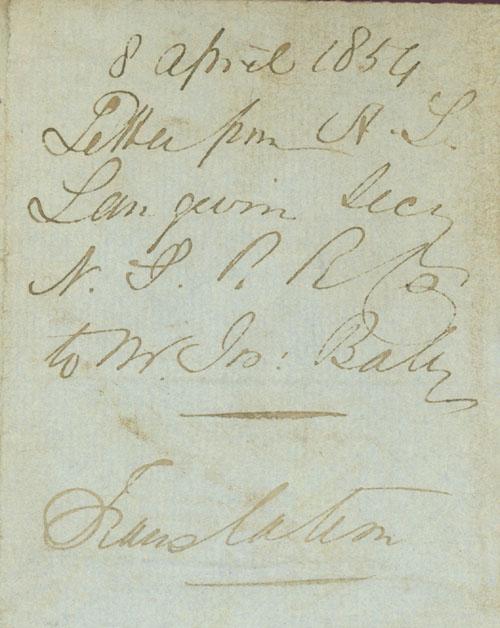 8 April 1854
Letter from H. L.
Langevin Secy
N. S. R. R. Co
to Mr. Jos: Baby
Translation